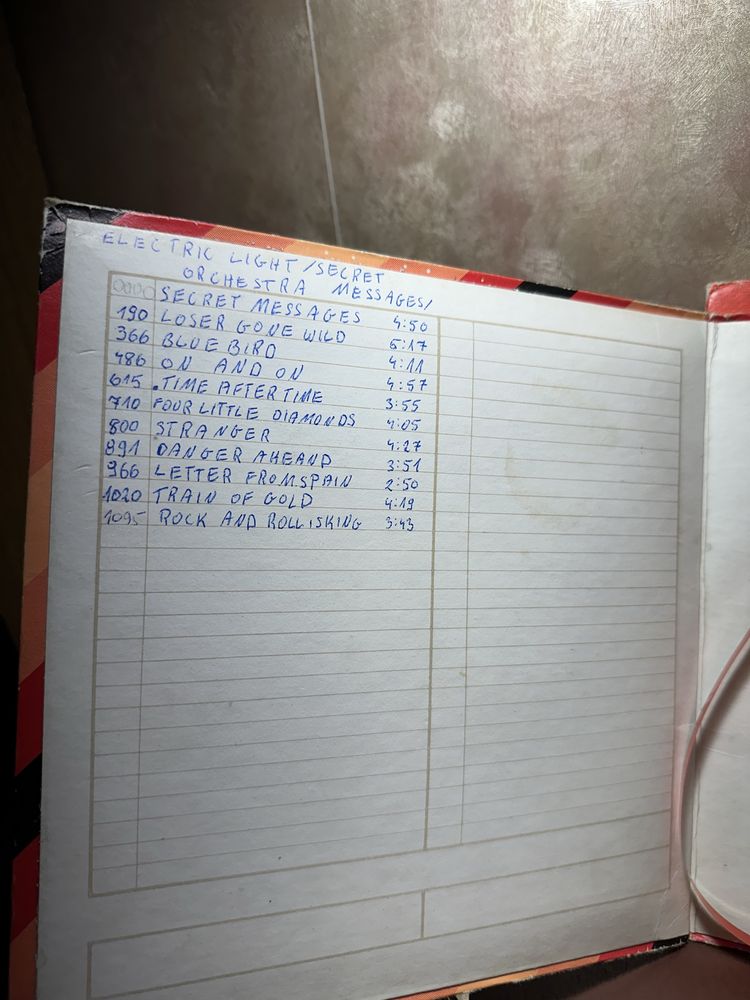 ELECTRIC LIGHT /SECRET
ORCHESTRA MESSAGES/
0000 SECRET MESSAGES 4:50
190 LOSER GONE WILD 5:17
366 BLUE BIRD 4:11
486 ON AND ON 4:57
615 .TIME AFTER TIME 3:55
710 FOUR LITTLE DIAMONDS 4:05
800 STRANGER 4:27
891 DANGER AHEAND 3:51
966 LETTER FROM SPAIN 2:50
1020 TRAIN OF GOLD 4:19
1095 ROCK AND ROLL IS KING 3:43